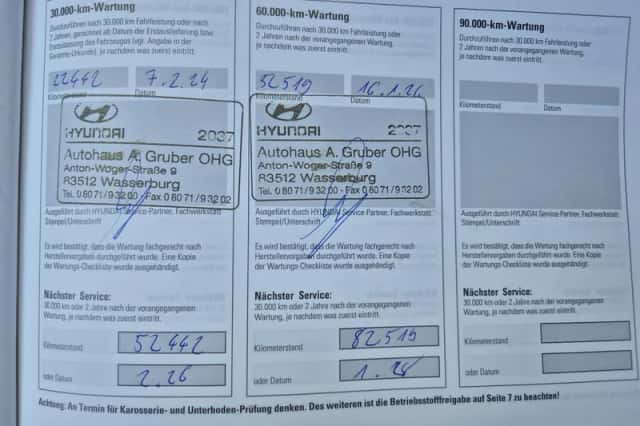 30.000-km-Wartung
Durchzuführen nach 30.000 km Fahrleistung oder nach
2 Jahren, gerechnet ab Datum der Erstauslieferung bzw.
Erstzulassung des Fahrzeuges (vgl. Angabe in der
Garantie-Urkunde), je nachdem was zuerst eintritt.
22442 7.2.24
Kilometerstand Datum
HYUNDAI 2037
Autohaus A. Gruber OHG
Anton-Woger-Straße 9
83512 Wasserburg
Tel. 0 80 71 / 9 32 00 - Fax 0 80 71 / 9 32 02
Ausgeführt durch HYUNDAI Service-Partner, Fachwerkstatt
Stempel/Unterschrift
Es wird bestätigt, dass die Wartung fachgerecht nach
Herstellervorgaben durchgeführt wurde. Eine Kopie
der Wartungs-Checkliste wurde ausgehändigt.
Nächster Service:
30.000 km oder 2 Jahre nach der vorangegangenen
Wartung, je nachdem was zuerst eintritt.
Kilometerstand 52442
oder Datum 2.26
60.000-km-Wartung
Durchzuführen nach 30.000 km Fahrleistung oder
2 Jahre nach der vorangegangenen Wartung,
je nachdem was zuerst eintritt.
52519 16.1.26
Kilometerstand Datum
HYUNDAI 2037
Autohaus A. Gruber OHG
Anton-Woger-Straße 9
83512 Wasserburg
Tel. 0 80 71 / 9 32 00 - Fax 0 80 71 / 9 32 02
Ausgeführt durch HYUNDAI Service-Partner, Fachwerkstatt
Stempel/Unterschrift
Es wird bestätigt, dass die Wartung fachgerecht nach
Herstellervorgaben durchgeführt wurde. Eine Kopie
der Wartungs-Checkliste wurde ausgehändigt.
Nächster Service:
30.000 km oder 2 Jahre nach der vorangegangenen
Wartung, je nachdem was zuerst eintritt.
Kilometerstand 82519
oder Datum 1.28
90.000-km-Wartung
Durchzuführen nach 30.000 km Fahrleistung oder
2 Jahre nach der vorangegangenen Wartung,
je nachdem was zuerst eintritt.
Kilometerstand Datum
Ausgeführt durch HYUNDAI Service-Partner, Fachwerkstatt
Stempel/Unterschrift
Es wird bestätigt, dass die Wartung fachgerecht nach
Herstellervorgaben durchgeführt wurde. Eine Kopie
der Wartungs-Checkliste wurde ausgehändigt.
Nächster Service:
30.000 km oder 2 Jahre nach der vorangegangenen
Wartung, je nachdem was zuerst eintritt.
Kilometerstand
oder Datum
Achtung: An Termin für Karosserie- und Unterboden-Prüfung denken. Des weiteren ist die Betriebsstofffreigabe auf Seite 7 zu beachten!